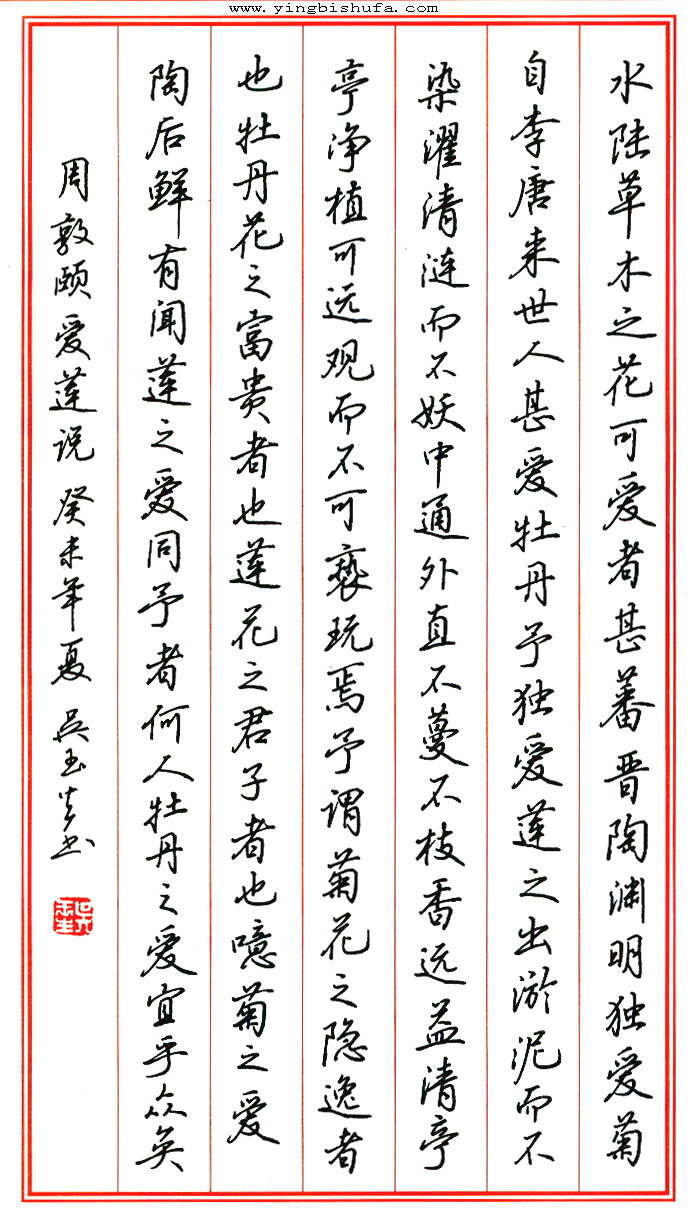 www.yingbishufa.com
水陆草木之花可爱者甚蕃晋陶渊明独爱菊
自李唐来世人甚爱牡丹予独爱莲之出淤泥而不
染濯清涟而不妖中通外直不蔓不枝香远益清亭
亭净植可远观而不可亵玩焉予谓菊花之隐逸者
也牡丹花之富贵者也莲花之君子者也噫菊之爱
陶后鲜有闻莲之爱同予者何人牡丹之爱宜乎众矣
周敦颐爱莲说 癸未年夏 吴玉生书
吴玉生